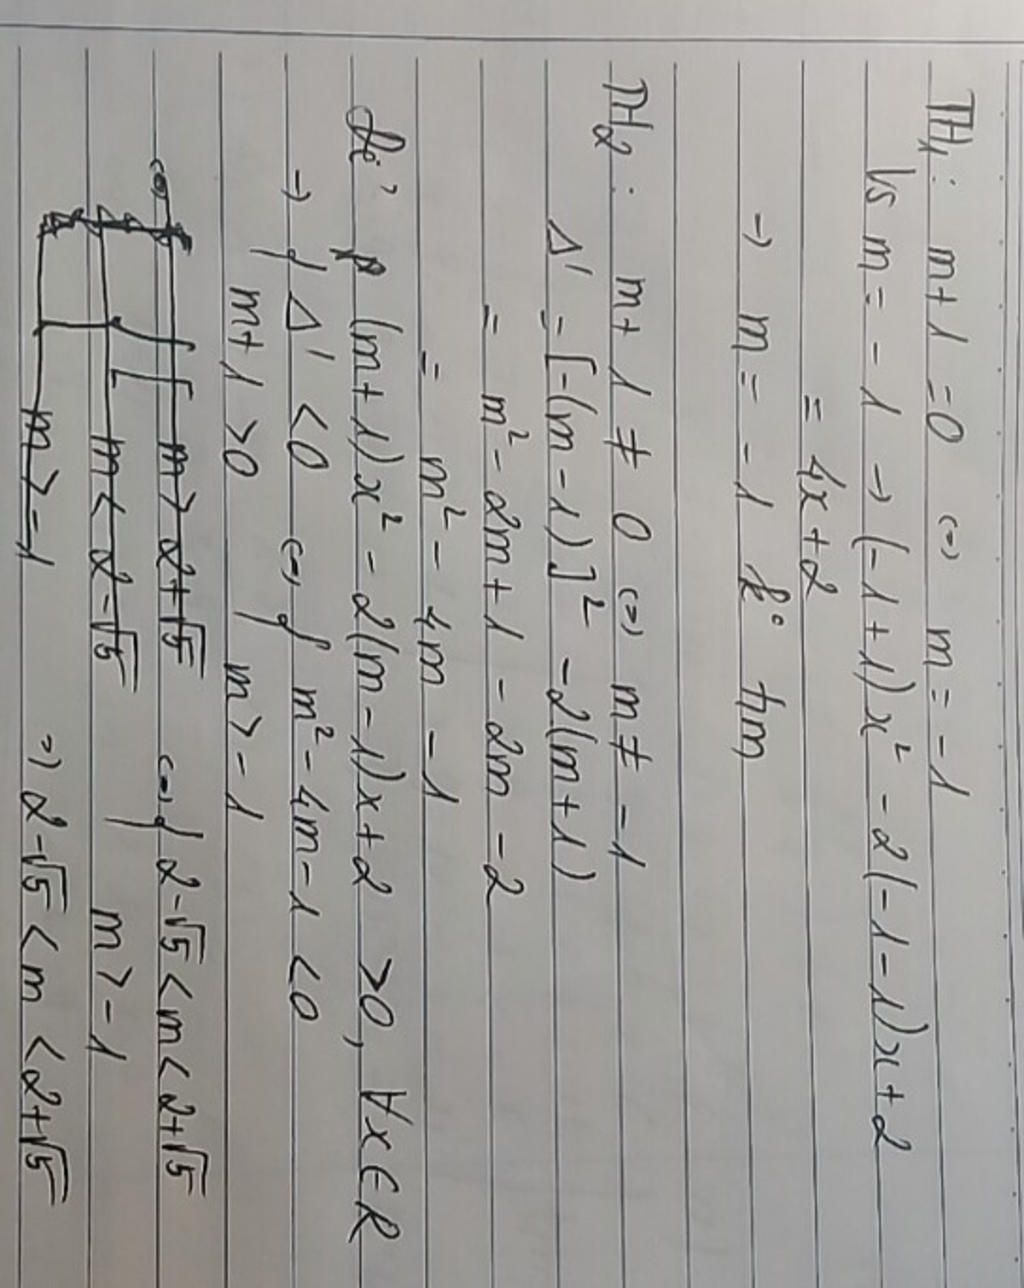 TH1: m+1=0 <=> m=-1
Vs m=-1 → (-1+1)x² - 2(-1-1)x+2
= 4x+2
→ m=-1 k° tm
TH2: m+1 ≠ 0 <=> m≠-1
Δ' = [-(m-1)]² - 2(m+1)
= m² - 2m+1 - 2m - 2
= m² - 4m - 1
Để (m+1)x² - 2(m-1)x+2 >0, ∀x∈R
→ { Δ' <0 <=> { m² - 4m - 1 <0
m+1 >0 m>-1
<=> { [ m>2+√5 <=> { 2-√5 <m< 2+√5
m< 2-√5 m>-1
m>-1 => 2-√5 <m <2+√5